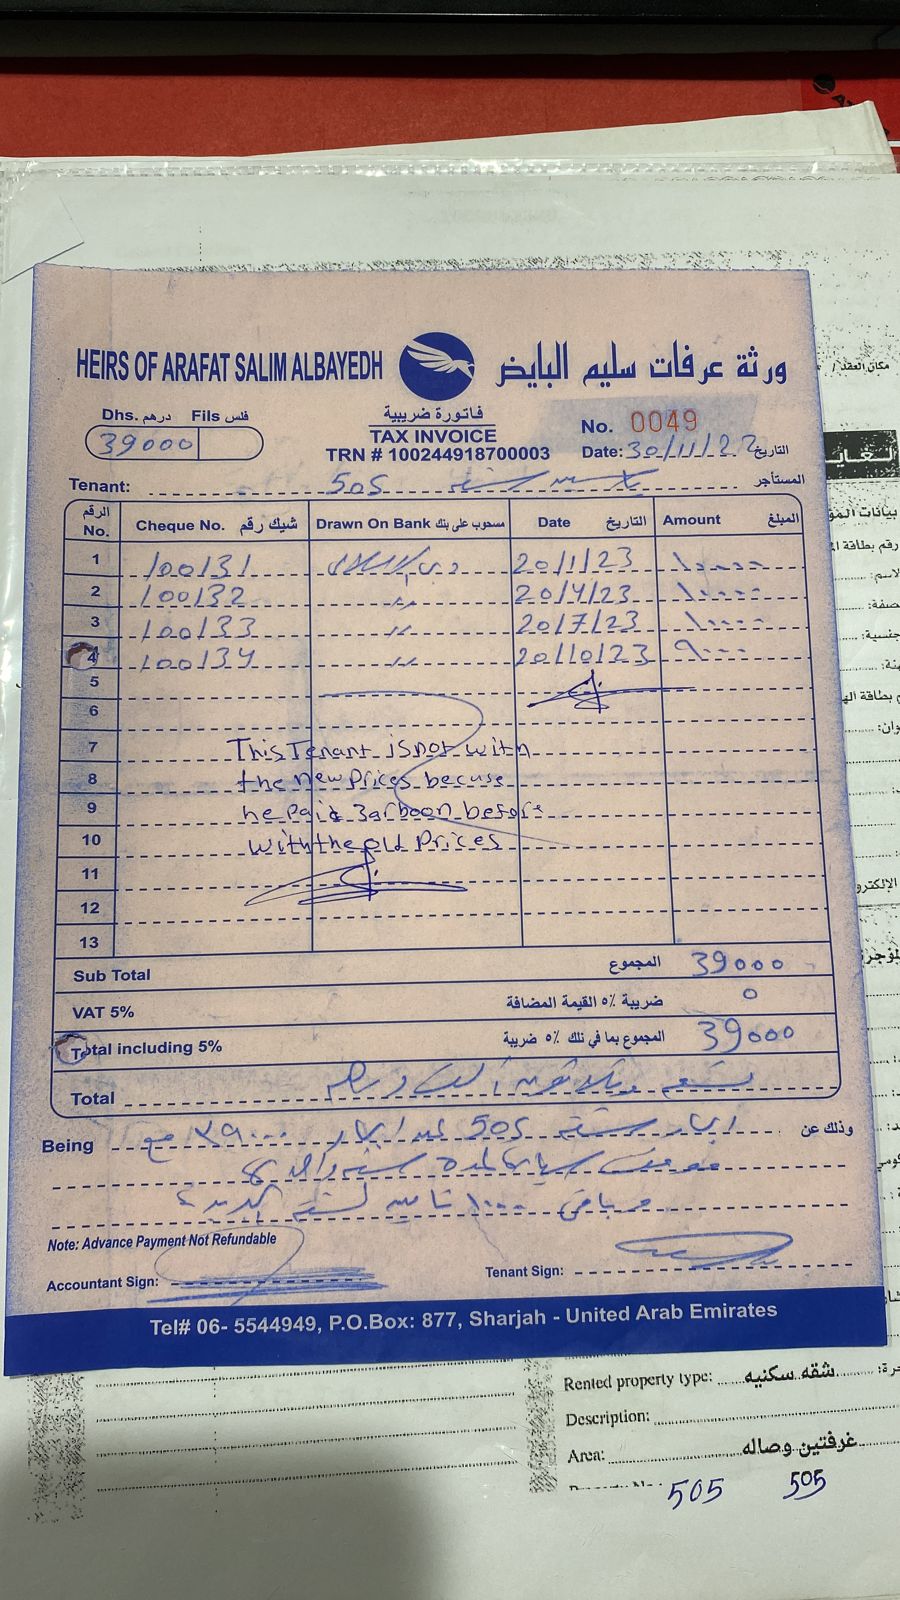 HEIRS OF ARAFAT SALIM ALBAYEDH
ورثة عرفات سليم البايض
Dhs. درهم Fils فلس
39000
فاتورة ضريبية
TAX INVOICE
TRN # 100244918700003
No. 0049
Date: 30/11/22 التاريخ
Tenant: 505 المستأجر
الرقم No. Cheque No. شيك رقم Drawn On Bank مسحوب على بنك Date التاريخ Amount المبلغ
1 100131 20/1/23 ١٠٠٠٠
2 100132 " 20/4/23 ١٠٠٠٠
3 100133 " 20/7/23 ١٠٠٠٠
4 100134 " 20/10/23 ٩٠٠٠
5
6
7 This Tenant is not with
8 the new Prices becuse
9 he paid 3arboon before
10 with the old Prices
11
12
13
Sub Total المجموع 39000
VAT 5% ضريبة ٥٪ القيمة المضافة 0
Total including 5% المجموع بما في ذلك ٥٪ ضريبة 39000
Total تسعة وثلاثون ألف درهم
Being 505 ٣٩٠٠٠ مع وذلك عن
Note: Advance Payment Not Refundable
Accountant Sign:
Tenant Sign:
Tel# 06- 5544949, P.O.Box: 877, Sharjah - United Arab Emirates
مكان العقد /
رقم بطاقة
الاسم:
Rented property type: شقه سكنيه
Description:
Area: غرفتين وصاله
505 505